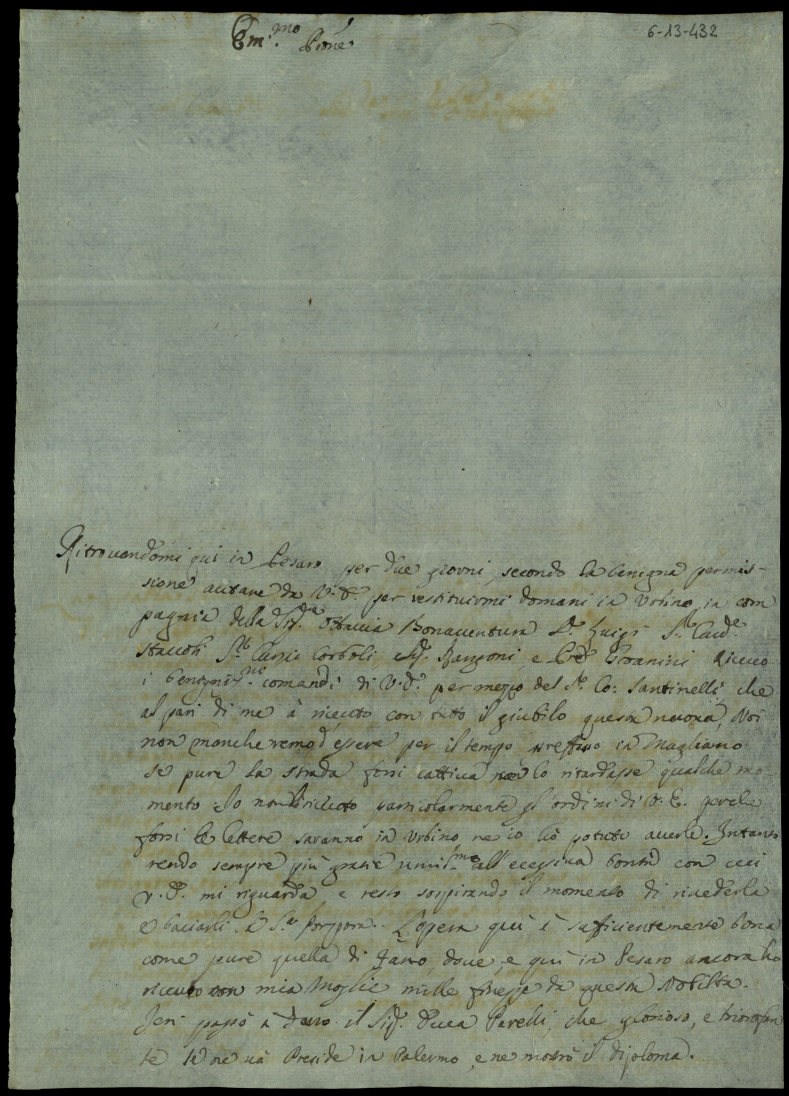 6-13-432
Em.mo Pr͠one.
Ritrovandomi qui in Pesaro per due giorni, secondo la benigna permis-
sione avutane da V. E. per restituirmi domani in Urbino in com
pagnia della Sig.ra Ottavia Bonaventura D. Luigi S.r Cav.e
Staccoli S.r Corboli Sig. Rangoni, e Giovanini Ricevo
i benignis.mi comandi di V. E. per mezzo del S.r Co: Santinelli, che
al pari di me à ricevuto con tutto il giubilo questa nuova, Noi
non mancheremo d'essere per il tempo prefisso in Magliano
se pure la strada forsi cattiva non lo ritardasse qualche mo-
mento: Io non ricevuto particolarmente gl'ordini di V. E. perche
forsi le lettere saranno in Urbino ne io hò potuto averle. Intanto
rendo sempre più grazie umil.me all'eccessiva bontà con cui
V. E. mi riguarda e resto sospirando il momento di rivederla
e baciarli la S.a Porpora. L'opera qui è sufficientemente bona
come pure quella di Fano, dove, e qui in Pesaro ancora ho
ricevuto con mia Moglie mille finezze da questa Nobiltà.
Jeri passò a il Sig. Duca che glorioso, e trionfan
te se ne và Preside in Palermo, e ne mostrò il diploma.